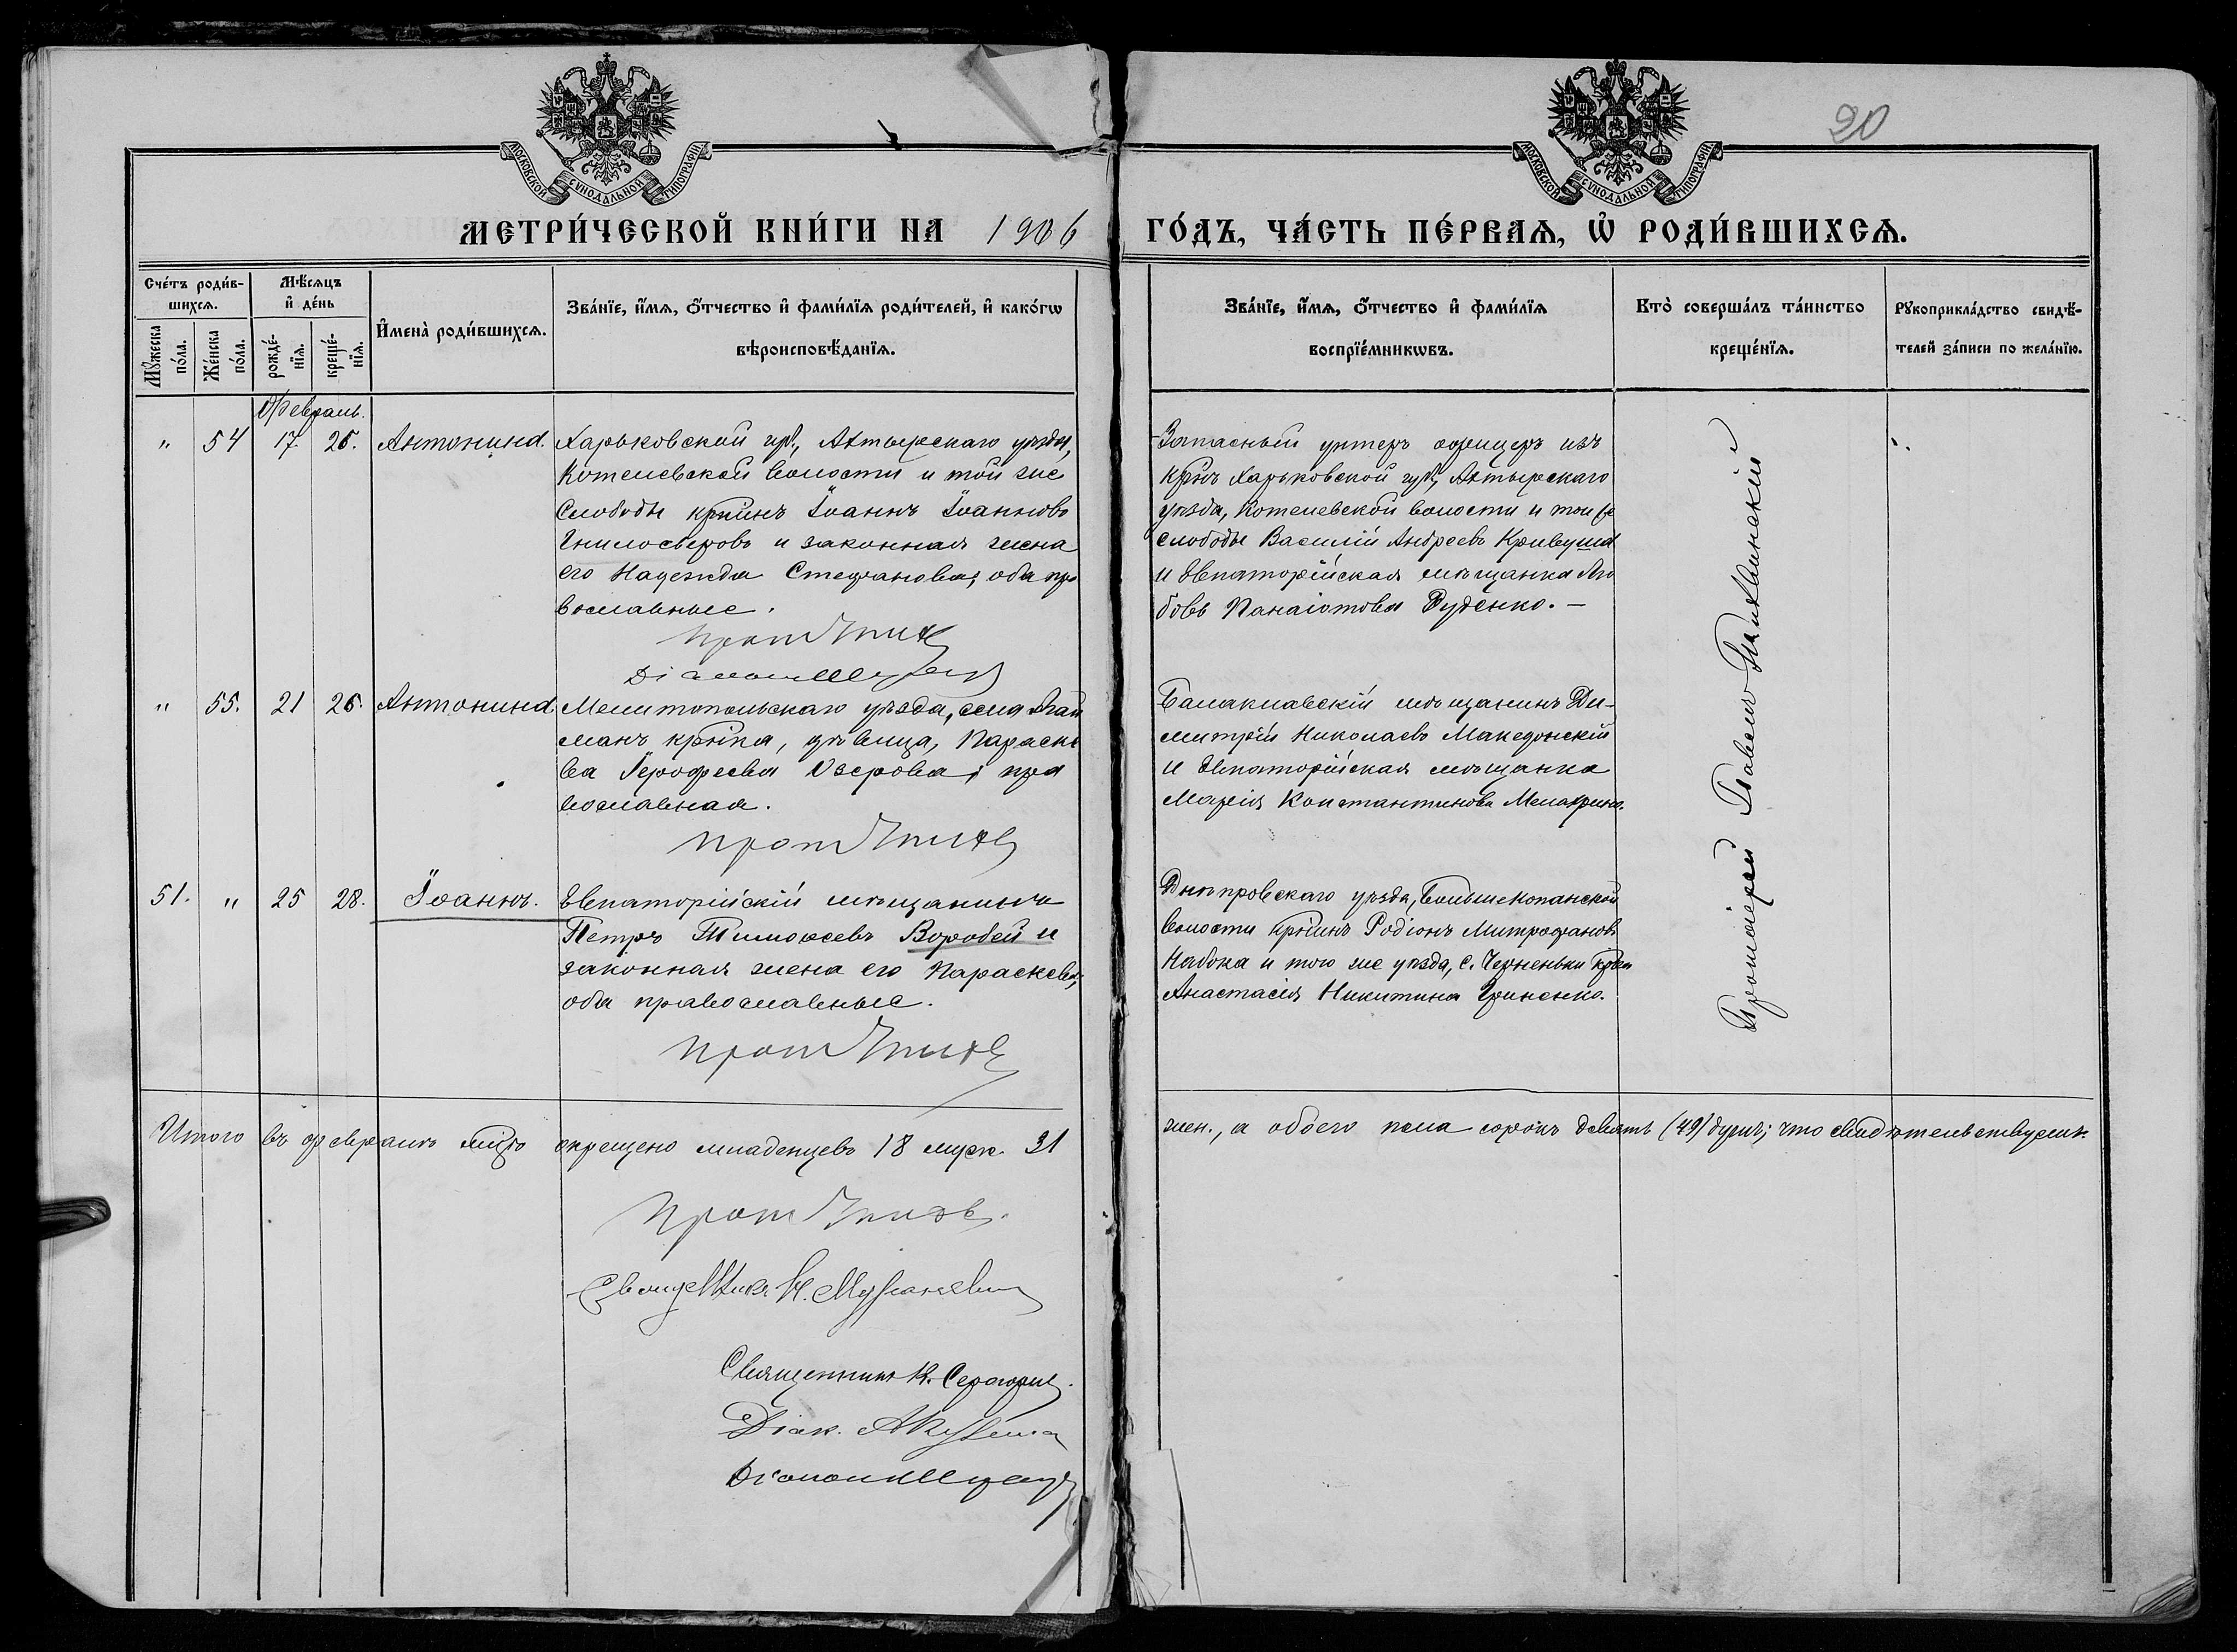 МОСКОВСКОЙ СѴНОДАЛЬНОЙ ТИПОГРАФІИ
МОСКОВСКОЙ СѴНОДАЛЬНОЙ ТИПОГРАФІИ
20
МЕТРИ́ЧЕСКОЙ КНИ́ГИ НА 1906
ГО́ДЪ, ЧА́СТЬ ПЕ́РВАѦ, Ѡ҆ РОДИ́ВШИХСѦ.
Сче́тъ роди́в-
шихсѧ.
Мꙋ́жеска
по́ла.
Же́нска
по́ла.
Мѣ́сѧцъ
и҆ де́нь
рожде́-
нїѧ.
креще́-
нїѧ.
И҆мена̀ роди́вшихсѧ.
Зва́нїе, и҆́мѧ, ѻ҆́тчество и҆ фами́лїѧ роди́телей, и҆ како́гѡ
вѣроисповѣ́данїѧ.
Зва́нїе, и҆́мѧ, ѻ҆́тчество и҆ фами́лїѧ
воспрїе́мникѡвъ.
Кто̀ соверша́лъ та́инство
креще́нїѧ.
Рꙋкоприкла́дство свидѣ́-
телей за́писи по жела́нїю.
Февраль.
" 54 17. 26. Антонина.
Харьковской губ., Ахтырскаго уѣзда,
Котелевской волости и той же
слободы кр-нинъ Іоаннъ Іоанновъ
Гнилосыровъ и законная жена
его Надежда Стефанова; оба пра
вославные.
Прот
Діаконъ
Запасный унтеръ офицеръ изъ
кр-нъ Харьковской губ., Ахтырскаго
уѣзда, Котелевской волости и той же
слободы Василій Андреевъ Кривуша
и Евпаторійская мѣщанка Лю
бовь Панаіотова Руденко. —
" 55. 21 26. Антонина.
Мелитопольскаго уѣзда, села Агай
манъ кр-нка, дѣвица, Параске
ва Іерофеева Озерова; пра
вославная.
Прот
Балаклавскій мѣщанинъ Ди-
митрій Николаевъ Македонскій
и Евпаторійская мѣщанка
Марія Константинова
51. " 25 28. Іоаннъ.
Евпаторійскій мѣщанинъ
Петръ Тимоѳеевъ Воробей и
законная жена его Параскева;
оба православные.
Прот
Днѣпровскаго уѣзда, Большекопанской
волости кр-нинъ Родіонъ Митрофановъ
Набока и того же уѣзда, с. Черненьки кр-ка
Анастасія Никитина Гриненко.
Протоіерей Павелъ
Итого въ февралѣ м-цѣ окрещено младенцевъ 18 муж. 31
жен., а обоего пола сорокъ девять (49) душъ; что свидѣтельствуемъ.
Прот
Священникъ Н.
Священникъ К.
Діак. А.
Діаконъ